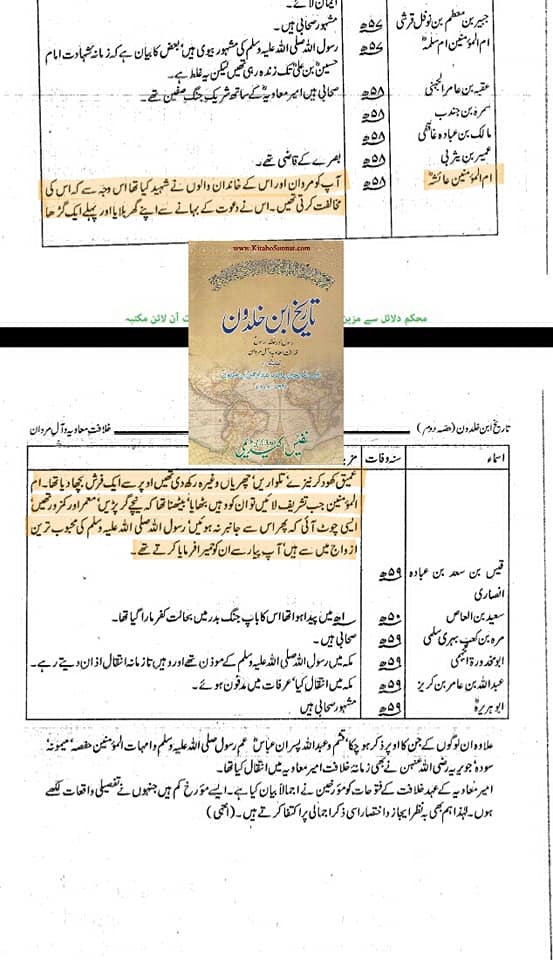 ایمان لائے۔
جبیر بن مطعم بن نوفل قرشی ۵۷ھ مشہور صحابی ہیں۔
ام المؤمنین ام سلمہؓ ۵۷ھ رسول اللہ صلی اللہ علیہ وسلم کی مشہور بیوی ہیں' بعض کا بیان ہے کہ زمانہ شہادت امام
حسینؓ بن علیؓ تک زندہ رہی تھیں لیکن یہ غلط ہے۔
عقبہ بن عامر الجہنی ۵۸ھ صحابی ہیں امیر معاویہؓ کے ساتھ شریک جنگ صفین تھے۔
سمرہ بن جندب ۵۸ھ
مالک بن عبادہ غافقی ۵۸ھ
عمیر بن یثربی ۵۸ھ بصرے کے قاضی تھے۔
ام المؤمنین عائشہؓ ۵۸ھ آپ کو مروان اور اس کے خاندان والوں نے شہید کیا تھا اس وجہ سے کہ اس کی
مخالفت کرتی تھیں۔ اس نے دعوت کے بہانے سے اپنے گھر بلایا اور پہلے ایک گڑھا
www.KitaboSunnat.com
تاریخ ابن خلدون
نفیس اکیڈیمی
محکم دلائل سے مزین
آن لائن مکتبہ
تاریخ ابن خلدون (حصہ دوم) خلافت معاویہؓ و آل مروان
اسماء سنہ وفات
عمیق کھود کر نیزے' تلواریں' چھریاں وغیرہ رکھ دی تھیں اوپر سے ایک فرش بچھا دیا تھا۔ ام
المؤمنین جب تشریف لائیں تو ان کو وہیں بٹھایا' بیٹھنا تھا کہ نیچے گر پڑیں' معمر اور کمزور تھیں'
ایسی چوٹ آئی کہ پھر اس سے جانبر نہ ہوئیں' رسول اللہ صلی اللہ علیہ وسلم کی محبوب ترین
ازواج میں سے ہیں' آپ پیار سے ان کو حمیرا فرمایا کرتے تھے۔
قیس بن سعد بن عبادہ ۵۹ھ
انصاری
سعید بن العاص ۵۰ھ ۱ھ میں پیدا ہوا تھا اس کا باپ جنگ بدر میں بحالت کفر مارا گیا تھا۔
مرہ بن کعب بہری سلمی ۵۹ھ صحابی ہیں۔
ابو محذورۃ الجمحی ۵۹ھ مکہ میں رسول اللہ صلی اللہ علیہ وسلم کے موذن تھے اور وہیں تا زمانہ انتقال اذان دیتے رہے۔
عبداللہ بن عامر بن کریز ۵۹ھ مکہ میں انتقال کیا' عرفات میں مدفون ہوئے۔
ابوہریرہؓ ۵۹ھ مشہور صحابی ہیں
علاوہ ان لوگوں کے جن کا اوپر ذکر ہو چکا' قثم و عبداللہ پسران عباسؓ عم رسول صلی اللہ علیہ وسلم و امہات المؤمنین حفصہ' میمونہ'
سودہ' جویریہ رضی اللہ عنہن نے بھی زمانہ خلافت امیر معاویہ میں انتقال کیا تھا۔
امیر معاویہ کے عہد خلافت کے فتوحات کو مؤرخین نے اجمالاً بیان کیا ہے۔ ایسے مؤرخ کم ہیں جنہوں نے تفصیلی واقعات لکھے
ہوں۔ لہٰذا ہم بھی بہ نظر ایجاز و اختصار اسی ذکر اجمالی پر اکتفا کرتے ہیں۔ (انتہی)